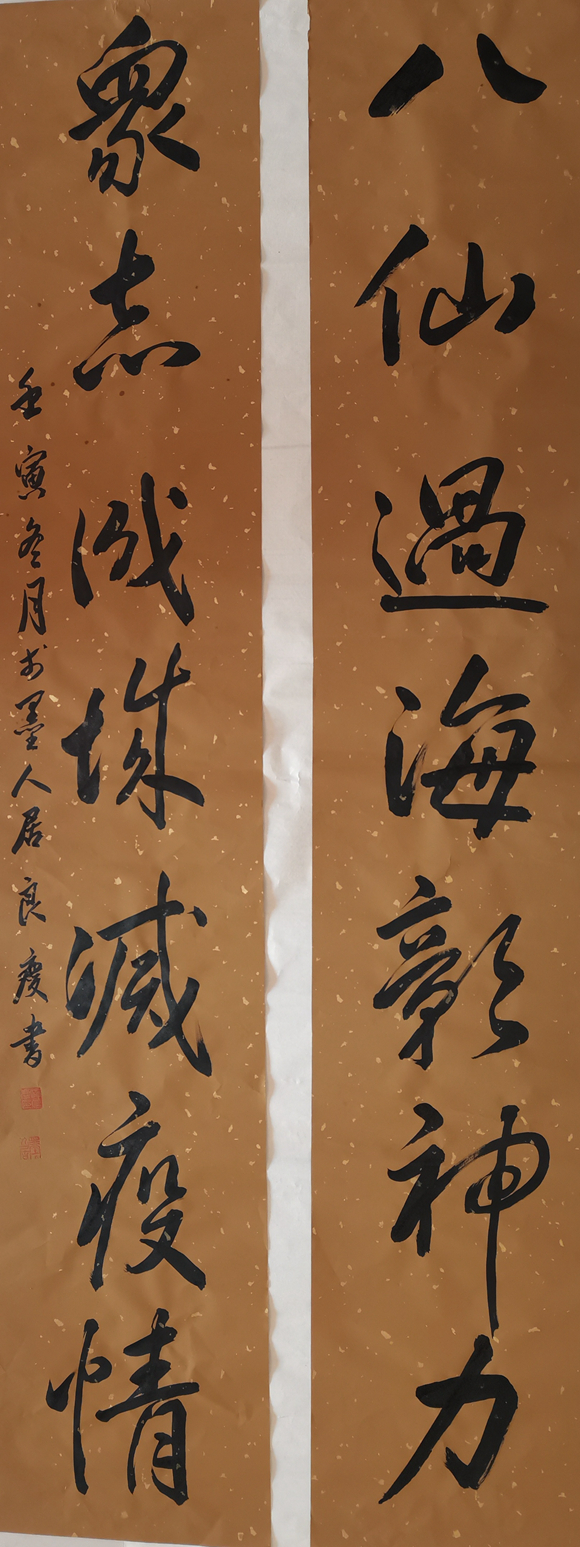 八仙過海彰神力
眾志成城滅疫情
壬寅冬月於墨人居良慶書